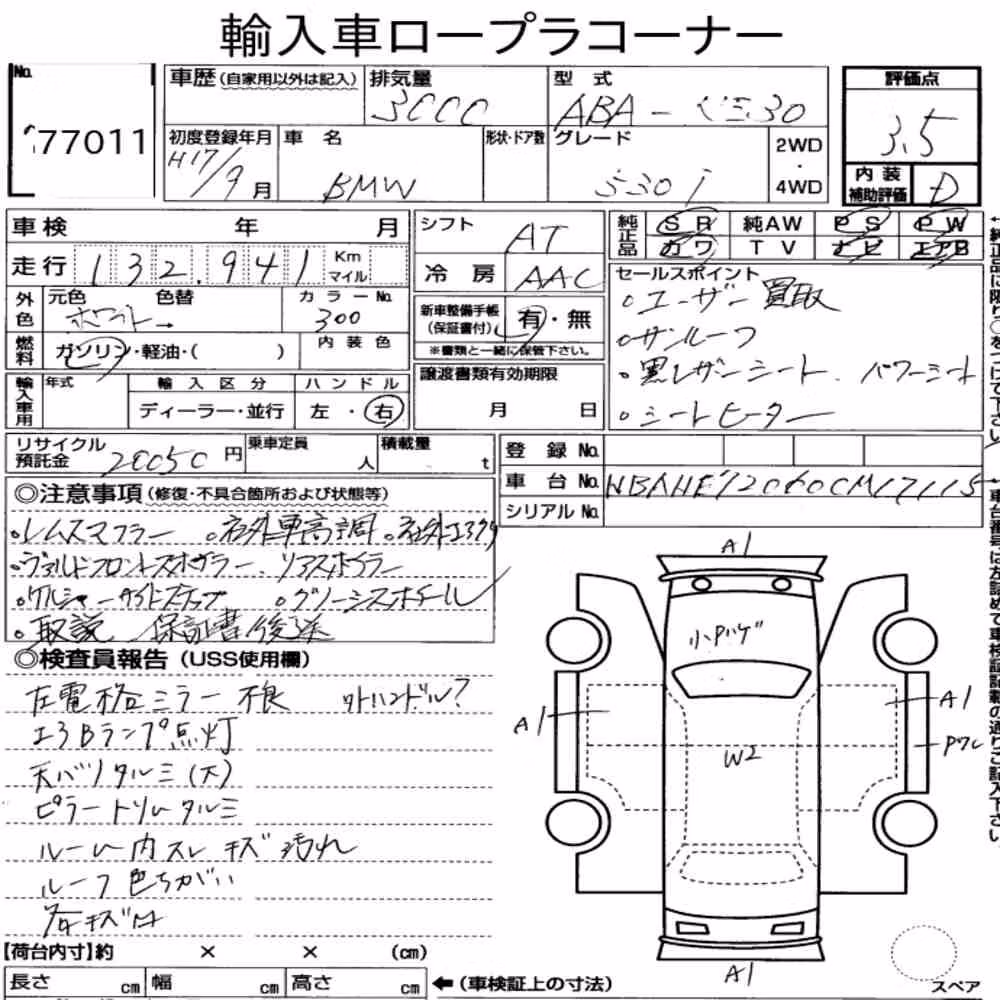 輸入車ロープラコーナー
No.
77011
車歴(自家用以外は記入)
排気量
3000
型 式
ABA-
30
評価点
3.5
初度登録年月
H17/9月
車 名
BMW
形状・ドア数
グレード
530i
2WD
・
4WD
内 装
補助評価
D
車検 年 月
走行 132,941 Km マイル
シフト
AT
冷 房 AAC
純正品
SR 純AW PS PW
カワ TV ナビ エアB
外色
元色 色替
ホワイト→
カラーNo.
300
燃料
ガソリン・軽油・( )
内 装 色
新車整備手帳
(保証書付)
有・無
※書類と一緒に保管下さい。
セールスポイント
。ユーザー買取
。サンルーフ
。黒レザーシート、パワーシート
。シートヒーター
輸入車用
年式
輸 入 区 分
ディーラー・並行
ハ ン ド ル
左 ・ 右
譲渡書類有効期限
月 日
リサイクル
預託金
20050円
乗車定員
人
積載量
t
登 録 No.
車 台 No. WBANE72060CM17115
シリアル No.
◎注意事項(修復・不具合箇所および状態等)
。レムスマフラー 。社外車高調 。社外エアクリ
。フロントスポイラー、リアスポイラー
。サイドステップ
。取説 保証書後送
◎検査員報告(USS使用欄)
左電格ミラー不良 外ハンドル?
エアBランプ点灯
天バリタルミ(大)
ピラートリムタルミ
ルーム内スレ キズ 汚れ
ルーフ色ちがい
【荷台内寸】約 × × (cm)
長さ cm 幅 cm 高さ cm
←(車検証上の寸法)
A1
小Pハゲ
A1
A1
W2
A1
スペア
←純正品に限り○をつけて下さい
←車台番号は左詰めで車検証記載の通りご記入下さい。